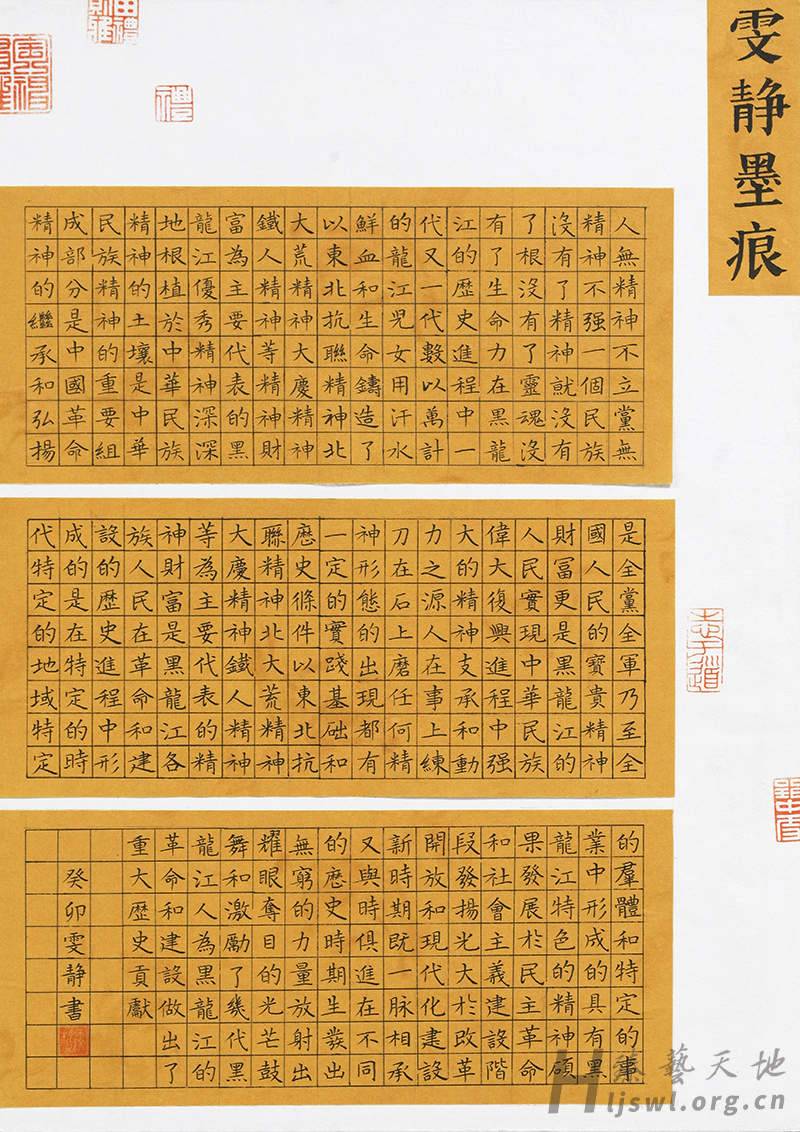 雯静墨痕
人無精神不立黨無
精神不强一個民族
沒有了精神就沒有
了根沒有了靈魂沒
有了生命力在黑龍
江的歷史進程中一
代又一代數以萬計
的龍江兒女用汗水
鮮血和生命鑄造了
以東北抗聯精神北
大荒精神大慶精神
鐵人精神等精神財
富為主要代表的黑
龍江優秀精神深深
地根植於中華民族
精神的土壤是中華
民族精神的重要組
成部分是中國革命
精神的繼承和弘揚
是全黨全軍乃至全
國人民的寶貴精神
財冨更是黑龍江的
人民實現中華民族
偉大復興進程中强
大的精神支承和動
力之源人在事上練
刀在石上磨任何精
神形態的出現都有
一定的實踐基础和
歷史條件以東北抗
聯精神北大荒精神
大慶精神鐵人精神
等為主要代表的精
神財富是黑龍江各
族人民在革命和建
設的歷史進程中形
成的是在特定的時
代特定的地域特定
的羣體和特定的事
業中形成的具有黑
龍江特色的精神碩
果發展於民主革命
和社會主義建設階
段發揚光大於改革
開放和現代化建設
新時期既一脈相承
又與時俱進在不同
的歷史時期生發出
無窮的力量放射出
耀眼奪目的光芒鼓
舞和激勵了幾代黑
龍江人為黑龍江的
革命和建設做出了
重大歷史貢獻
癸卯雯静書
藝天地
ljswl.org.cn